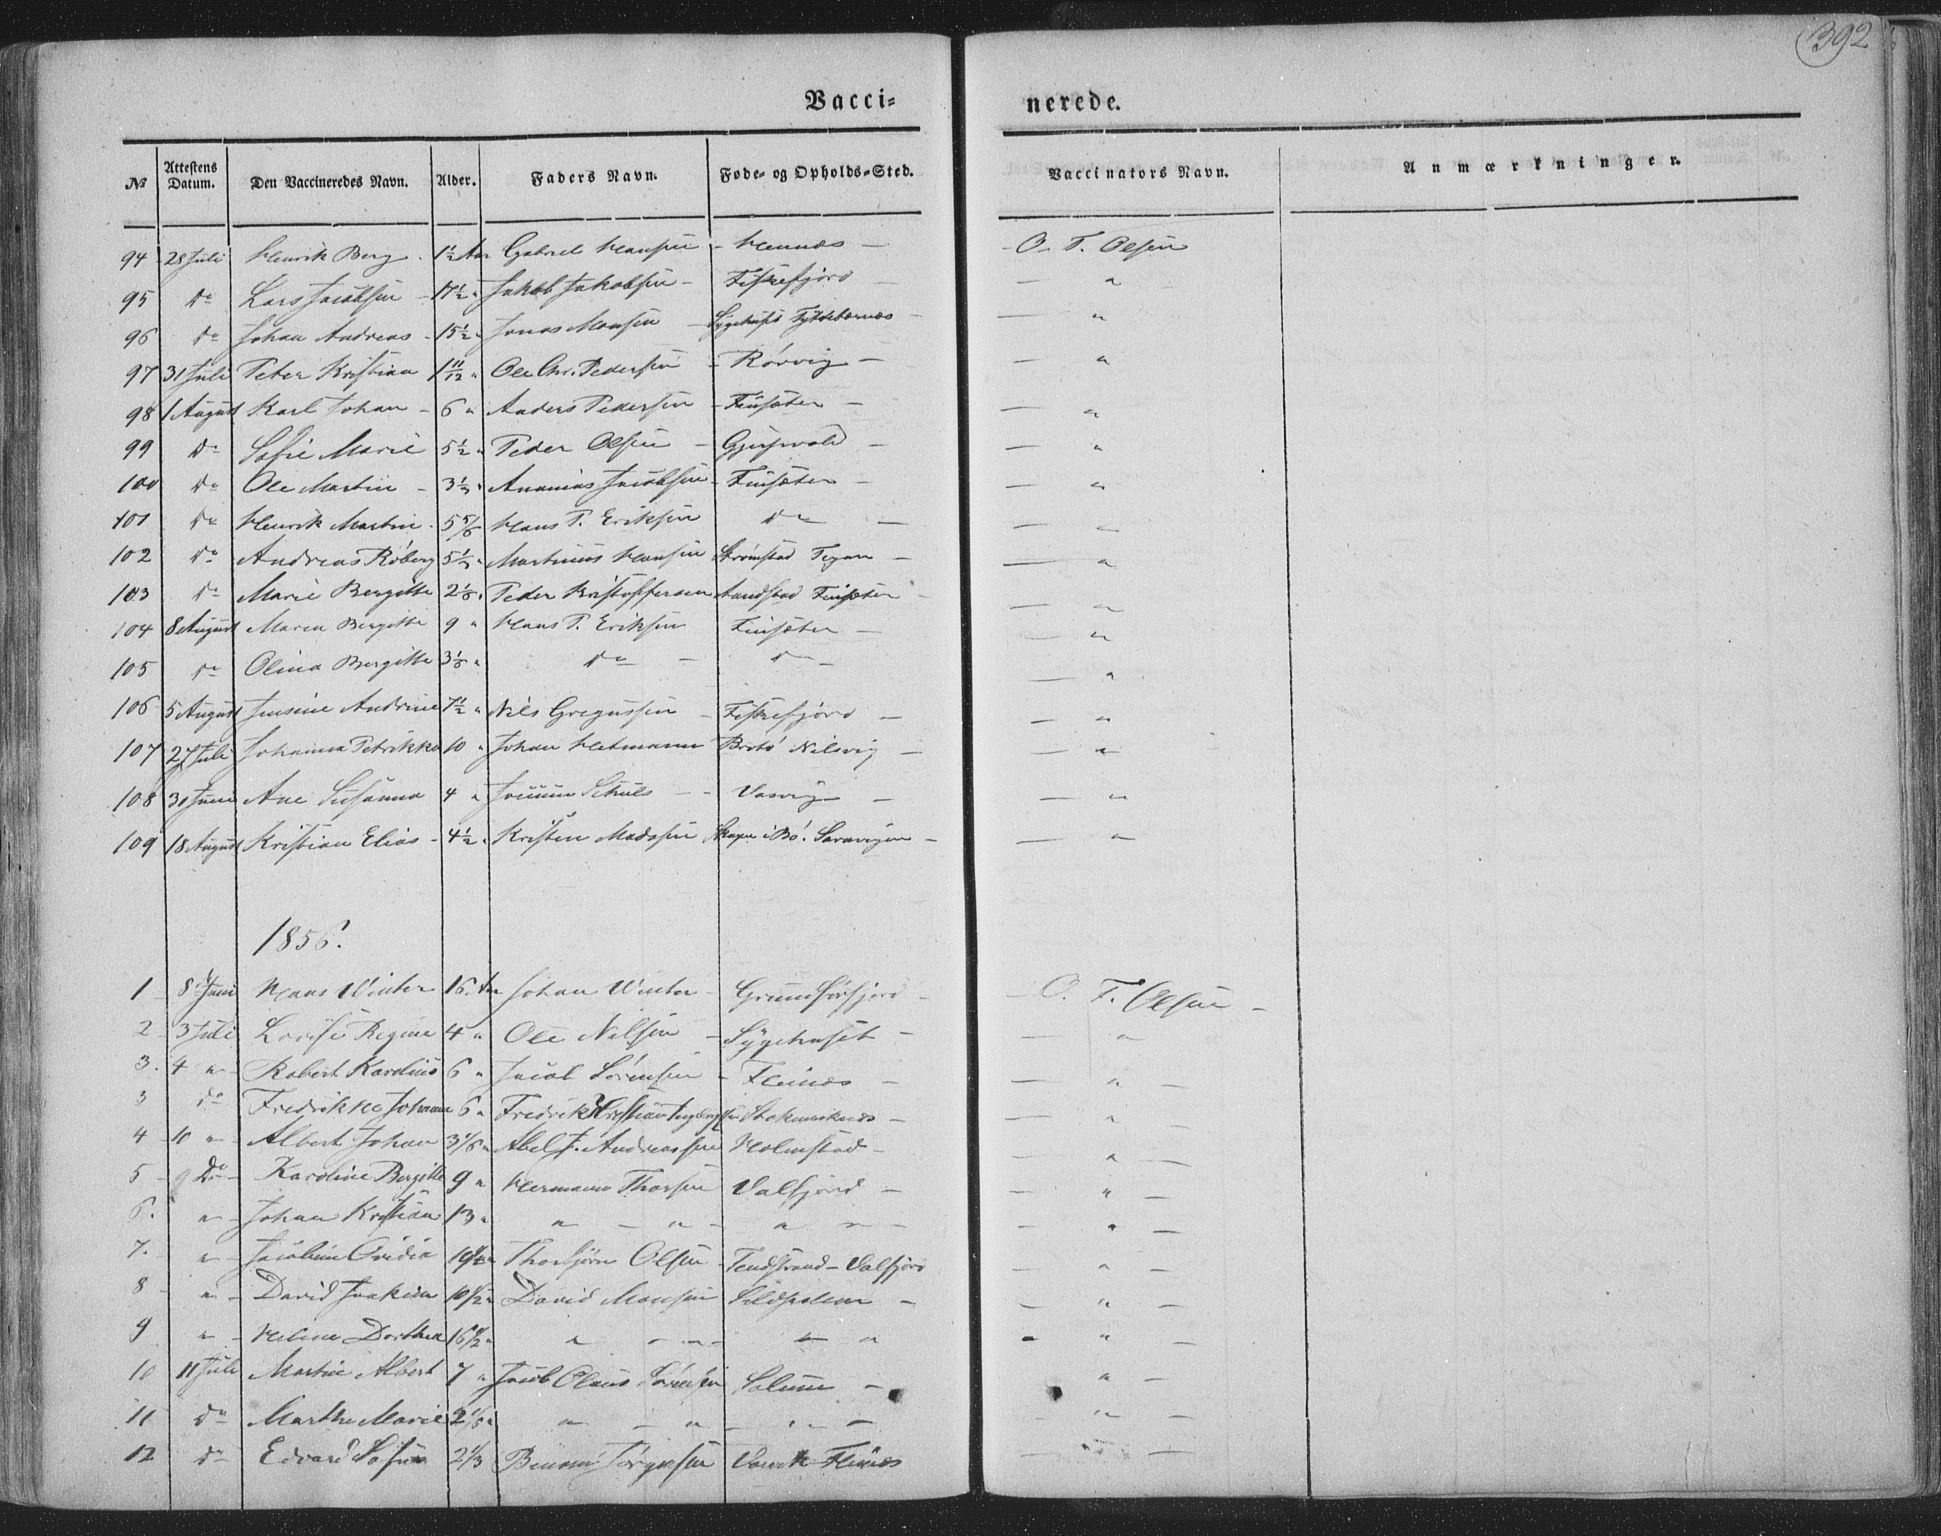 392
Vacci=
nerede.
№ Attestens Datum. Den Vaccineredes Navn. Alder. Faders Navn. Føde= og Opholds=Sted. Vaccinators Navn. Anmærkninger.
94 28 Juli Henrik Berg 1½ Aar Gabriel Hansen - Hennæs - - O. T. Olsen
95 Do Lars Jacobsen - 17½ " Jakob Jakobsen - Fiskefjord - — "
96 Do Johan Andreas - 15½ " Jonas Monsen - Sygehuset Tyttebærnæs - — "
97 31 Juli Peter Kristian 1 11/12 " Ole Chr. Pedersen - Rørvig - — "
98 1 August Karl Johan - 6 " Anders Pedersen - Finsæter - — "
99 Do Sofie Marie 5½ " Peder Olsen - - — "
100 Do Ole Martin - 3½ " Ananias Jacobsen - Finsæter - — "
101 Do Henrik Martin 5 5/6 Hans P. Eriksen Do - — "
102 Do Andreas Røberg 5½ " Martinus Hansen Strømstad - — "
103 Do Marie Bergitte 2⅛ " Peder Kristoffersen Sandstad Finsæter - — "
104 8 August Maren Bergitte 9 " Hans P. Eriksen Finsæter - — "
105 Do Olina Bergitte 3⅛ " Do - Do - — "
106 5 August Jensine Andrine 7½ " Nils Gregussen - Fiskefjord - — "
107 27 Juli Johanna Petrikke 10 " Johan Hetmann Brotø Nilsvig - — "
108 30 Juni Ane Susanna 4 " Schuls - - Vasvig - — "
109 18 August Kristian Elias - 4½ " Kristen Madssen i Bø. - — "
1856.
1 8 Juni Hans Winter 16 Aar Johan Winter - Grundførfjord - - O. T. Olsen -
2 3 Juli Lovise Regine 4 " Ole Nilsen - Sygehuset - — "
3. 4 " Robert Karolius 6 " Jacob Sørensen - Fleinæs - — "
3 Do Fredrikke Johanne 6 " Fredrik Kristian Stokmarknæs - — "
4 10 " Albert Johan 3 1/6 " Abel J. Andreassen Holmstad - — "
5 9 Do Karoline Bergitte 9 " Hermann Thorsen Valfjord - — " —
6. " Johan Kristian 13 " " - " - " " - — " —
7. " Jacobine Ovidia 10½ " Thorbjørn Olsen - Tendstrand - Valfjord — " —
8 " David Joakim 10½ " David Monsen Sildpolen - — " —
9 " Helene Dorthea 16½ " " - " - " " - " —
10 11 Juli Martin Albert 7 " Jacob Claus Sørensen - — " —
11 Do Marthe Marie 2⅛ " " - " - " " - — " —
12 Do Edvard 2⅓ Jørgensen Fleinæs — " —